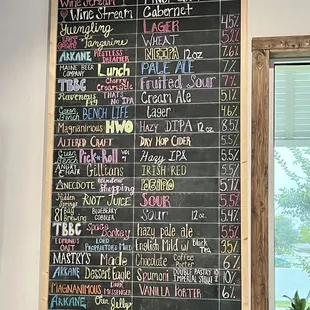 Wine Stream Cabernet
Yuengling LAGER 4.5%
Tangerine WHEAT 5.2%
ARKANE RESTLESS DREAMER NEIPA 12oz 7.6%
MAINE BEER COMPANY Lunch PALE ALE 7%
TBBC Cherry Fruited Sour 7%
Ravenous Pig THAT'S NO IPA Cream Ale 5.1%
BENCH LIFE Lager 4.6%
Magnanimous HWO HAZY DIPA 12oz 8.5%
ALTERED CRAFT DRY HOP CIDER 5.5%
Pick-n-Roll HAZY IPA 5.5%
ANGRY HAIR Gilltians IRISH RED 5.5%
ANECDOTE window shopping
Hidden Springs RIOT JUICE SOUR 5.5%
81 Bay Brewing BLUEBERRY COBBLER SOUR 12oz 5.4%
TBBC Space Donkey Hazy pale ale 5.5%
EDMUND'S OAST LORD PROPRIETOR'S MILD English Mild w/ Black Tea 3.5%
MASTRY'S Made Chocolate Coffee Porter 6%
ARKANE Dessert Eagle Spumoni DOUBLE PASTRY IMPERIAL STOUT 10%
MAGNANIMOUS VANILLA PORTER 6%
ARKANE Jelly